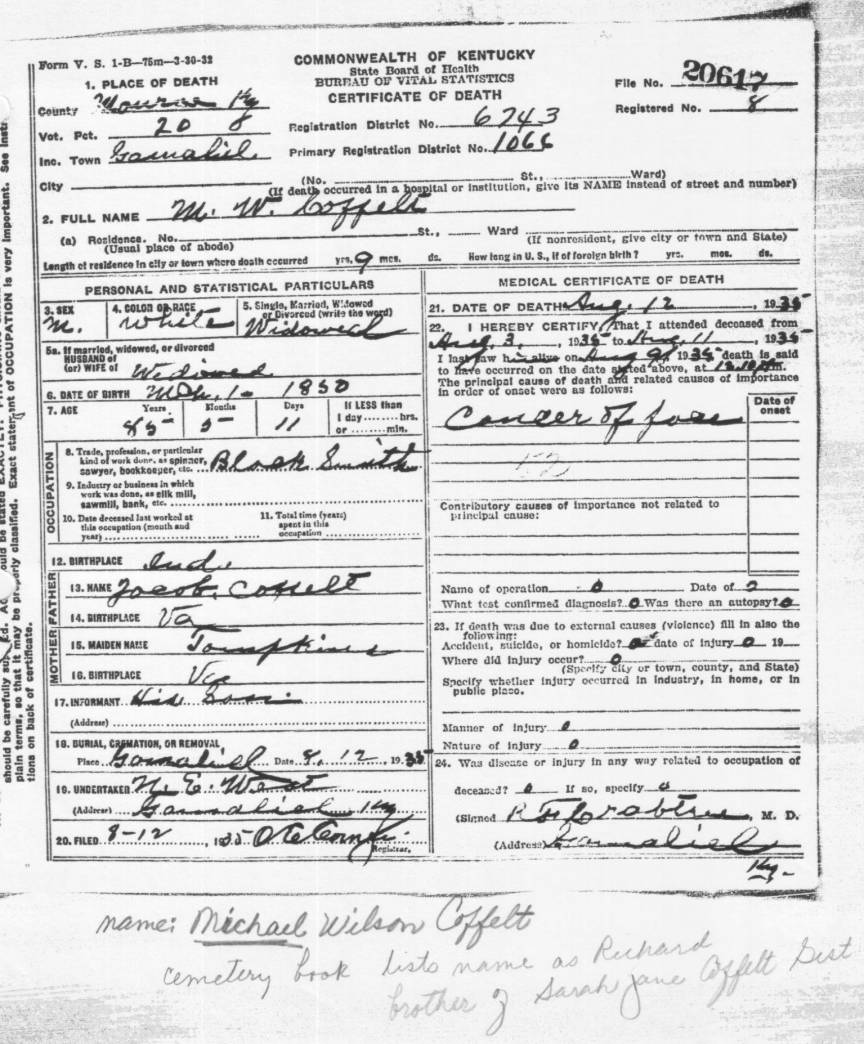 Form V. S. 1-B—75m—3-30-32
COMMONWEALTH OF KENTUCKY
State Board of Health
BUREAU OF VITAL STATISTICS
CERTIFICATE OF DEATH
File No. 20617
Registered No. 8
1. PLACE OF DEATH
County Monroe Ky
Vot. Pct. 20 8
Inc. Town Gamaliel
Registration District No. 6743
Primary Registration District No. 1066
City (No. St., Ward)
(If death occurred in a hospital or institution, give its NAME instead of street and number)
2. FULL NAME M. W. Coffelt
(a) Residence. No. St., Ward
(Usual place of abode) (If nonresident, give city or town and State)
Length of residence in city or town where death occurred yrs. 9 mos. ds. How long in U. S., if of foreign birth? yrs. mos. ds.
PERSONAL AND STATISTICAL PARTICULARS
3. SEX M.
4. COLOR OR RACE White
5. Single, Married, Widowed or Divorced (write the word) Widowed
5a. If married, widowed, or divorced
HUSBAND of
(or) WIFE of Widowed
6. DATE OF BIRTH Mch. 1- 1850
7. AGE Years Months Days If LESS than
85 5 11 1 day hrs.
or min.
OCCUPATION
8. Trade, profession, or particular
kind of work done, as spinner,
sawyer, bookkeeper, etc. Black Smith
9. Industry or business in which
work was done, as silk mill,
sawmill, bank, etc.
10. Date deceased last worked at
this occupation (month and
year)
11. Total time (years)
spent in this
occupation
12. BIRTHPLACE Ind.
FATHER
13. NAME Jacob Coffelt
14. BIRTHPLACE Va
MOTHER
15. MAIDEN NAME Tompkins
16. BIRTHPLACE Va
17. INFORMANT His Son
(Address)
18. BURIAL, CREMATION, OR REMOVAL
Place Gamaliel Date 8, 12, 1935
19. UNDERTAKER N. E. West
(Address) Gamaliel Ky
20. FILED 8-12, 1935
Registrar.
MEDICAL CERTIFICATE OF DEATH
21. DATE OF DEATH Aug. 12, 1935
22. I HEREBY CERTIFY, That I attended deceased from
Aug. 3, 1935 to Aug. 11, 1935
I last saw him alive on Aug 9, 1935 death is said
to have occurred on the date stated above, at
The principal cause of death and related causes of importance
in order of onset were as follows:
Date of onset
Cancer of face
52
Contributory causes of importance not related to
principal cause:
Name of operation 0 Date of
What test confirmed diagnosis? 0 Was there an autopsy? 0
23. If death was due to external causes (violence) fill in also the
following:
Accident, suicide, or homicide? 0 date of injury 0 19
Where did injury occur? 0
(Specify city or town, county, and State)
Specify whether injury occurred in industry, in home, or in
public place.
Manner of injury 0
Nature of injury 0
24. Was disease or injury in any way related to occupation of
deceased? 0 If so, specify 0
(Signed Crabtree, M. D.
(Address) Gamaliel
Ky-
should be carefully
plain terms, so that it may be properly classified. Exact statement of OCCUPATION is very important. See
tions on back of certificate.
name: Michael Wilson Coffelt
cemetery book lists name as Richard
brother of Sarah Jane Coffelt Gist